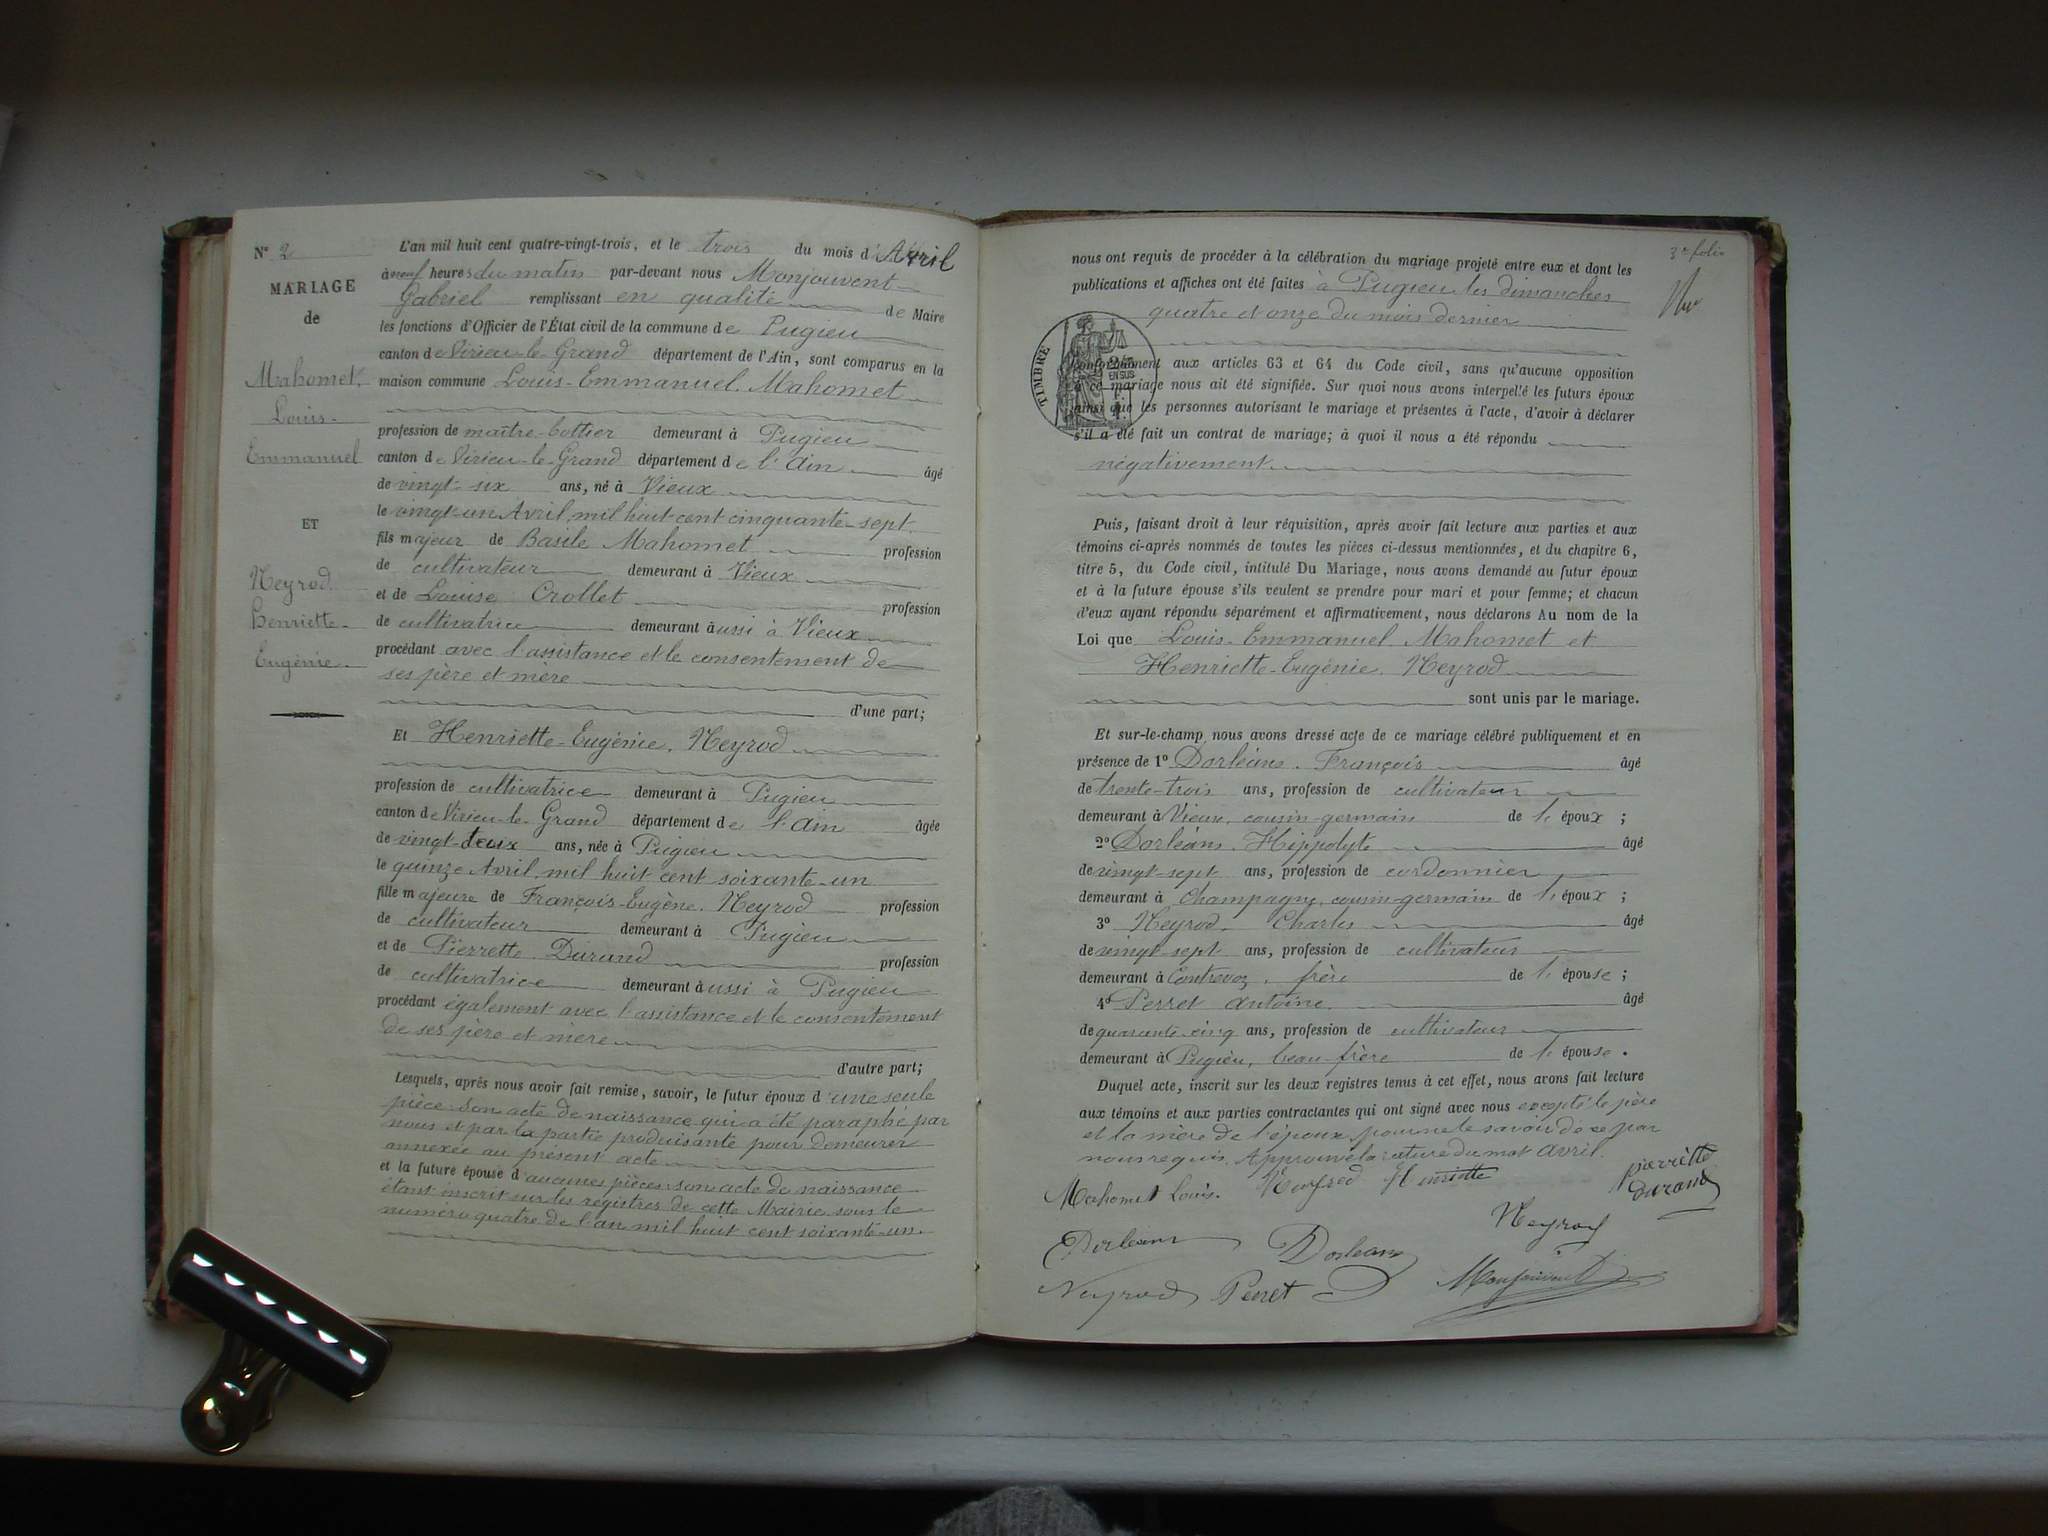 N° 2
MARIAGE
de
Mahomet,
Louis-
Emmanuel
ET
Neyrod
Henriette-
Eugénie.
L'an mil huit cent quatre-vingt-trois, et le trois du mois d'Avril
à neuf heures du matin par-devant nous Monjouvent
Gabriel remplissant en qualité de Maire
les fonctions d'Officier de l'État civil de la commune de Pugieu
canton de Virieu-le-Grand département de l'Ain, sont comparus en la
maison commune Louis-Emmanuel. Mahomet
profession de maître-bottier demeurant à Pugieu
canton de Virieu-le-Grand département de l'Ain âgé
de vingt-six ans, né à Vieux
le vingt-un Avril, mil huit cent cinquante-sept
fils majeur de Basile Mahomet profession
de cultivateur demeurant à Vieux
et de Louise Crollet profession
de cultivatrice demeurant aussi à Vieux
procédant avec l'assistance et le consentement de
ses père et mère
d'une part;
Et Henriette-Eugénie. Neyrod
profession de cultivatrice demeurant à Pugieu
canton de Virieu-le-Grand département de l'Ain âgée
de vingt-deux ans, née à Pugieu
le quinze Avril, mil huit cent soixante-un
fille majeure de François-Eugène. Neyrod profession
de cultivateur demeurant à Pugieu
et de Pierrette Durand profession
de cultivatrice demeurant aussi à Pugieu
procédant également avec l'assistance et le consentement
de ses père et mère
d'autre part;
Lesquels, après nous avoir fait remise, savoir, le futur époux d'une seule
pièce: son acte de naissance qui a été paraphé par
nous et par la partie produisante pour demeurer
annexée au présent acte
et la future épouse d'aucunes pièces: son acte de naissance
étant inscrit sur les registres de cette Mairie sous le
numéro quatre de l'an mil huit cent soixante-un.
3me folio
nous ont requis de procéder à la célébration du mariage projeté entre eux et dont les
publications et affiches ont été faites à Pugieu les dimanches
quatre et onze du mois dernier
TIMBRE
2/10es EN SUS
conformément aux articles 63 et 64 du Code civil, sans qu'aucune opposition
à ce mariage nous ait été signifiée. Sur quoi nous avons interpellé les futurs époux
ainsi que les personnes autorisant le mariage et présentes à l'acte, d'avoir à déclarer
s'il a été fait un contrat de mariage; à quoi il nous a été répondu
négativement.
Puis, faisant droit à leur réquisition, après avoir fait lecture aux parties et aux
témoins ci-après nommés de toutes les pièces ci-dessus mentionnées, et du chapitre 6,
titre 5, du Code civil, intitulé Du Mariage, nous avons demandé au futur époux
et à la future épouse s'ils veulent se prendre pour mari et pour femme; et chacun
d'eux ayant répondu séparément et affirmativement, nous déclarons Au nom de la
Loi que Louis-Emmanuel. Mahomet et
Henriette-Eugénie. Neyrod
sont unis par le mariage.
Et sur-le-champ nous avons dressé acte de ce mariage célébré publiquement et en
présence de 1° Dorléans. François âgé
de trente-trois ans, profession de cultivateur
demeurant à Vieux, cousin-germain de l' époux ;
2° Dorléans. Hippolyte âgé
de vingt-sept ans, profession de cordonnier
demeurant à Champagne, cousin-germain de l' époux ;
3° Neyrod. Charles âgé
de vingt-sept ans, profession de cultivateur
demeurant à Contrevoz, frère de l' épouse ;
4° Perret Antoine. âgé
de quarante-cinq ans, profession de cultivateur
demeurant à Pugieu, beau-frère de l' épouse.
Duquel acte, inscrit sur les deux registres tenus à cet effet, nous avons fait lecture
aux témoins et aux parties contractantes qui ont signé avec nous excepté le père
et la mère de l'époux pour ne le savoir de ce par
nous requis. Approuvé la rature du mot Avril.
Mahomet Louis. Neyrod Henriette pierrette
durand
Neyrod
Dorleans Dorleans
Neyrod Perret Monjouvent